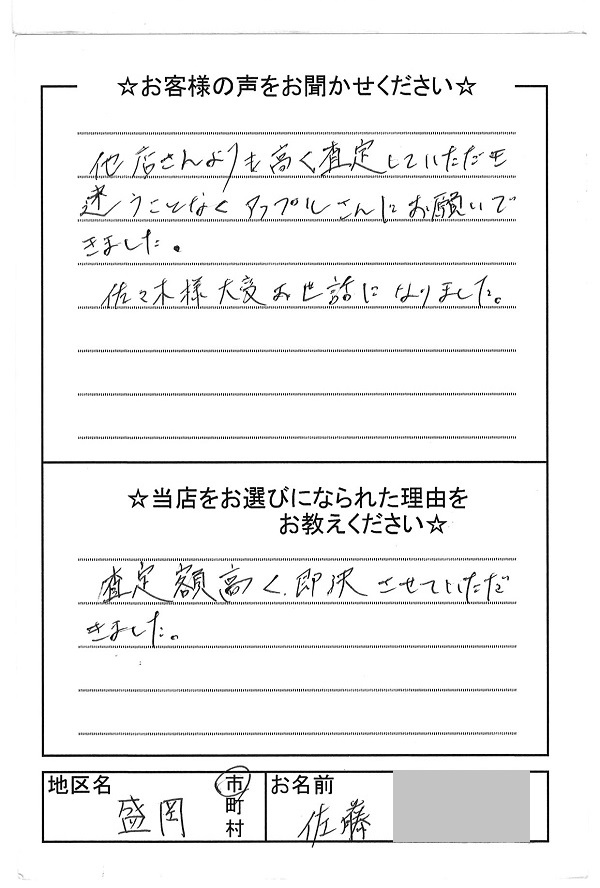 ☆お客様の声をお聞かせください☆
他店さんよりも高く査定していただき
迷うことなくアップルさんにお願いで
きました。
佐々木様大変お世話になりました。
☆当店をお選びになられた理由を
お教えください☆
査定額高く、即決させていただ
きました。
地区名 盛岡 市町村 お名前 佐藤